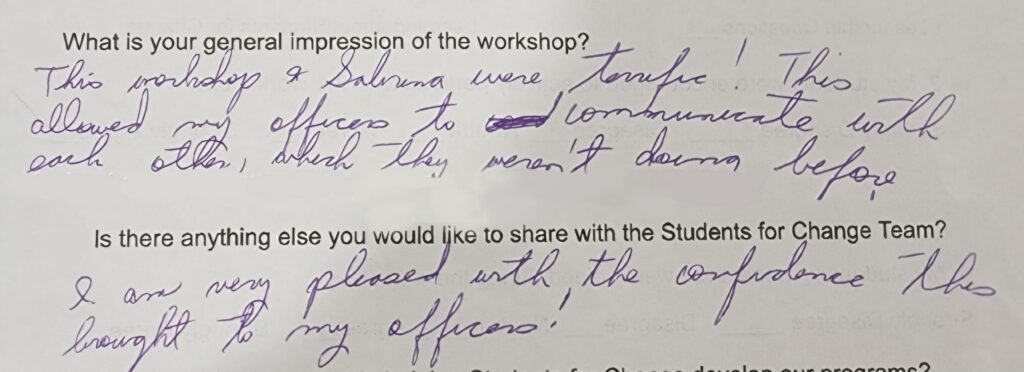 What is your general impression of the workshop?
This workshop & Sabrina were terrific! This
allowed my officers to communicate with
each other, which they weren't doing before.
Is there anything else you would like to share with the Students for Change Team?
I am very pleased with the confidence this
brought to my officers!
Students for Change develop our programs?